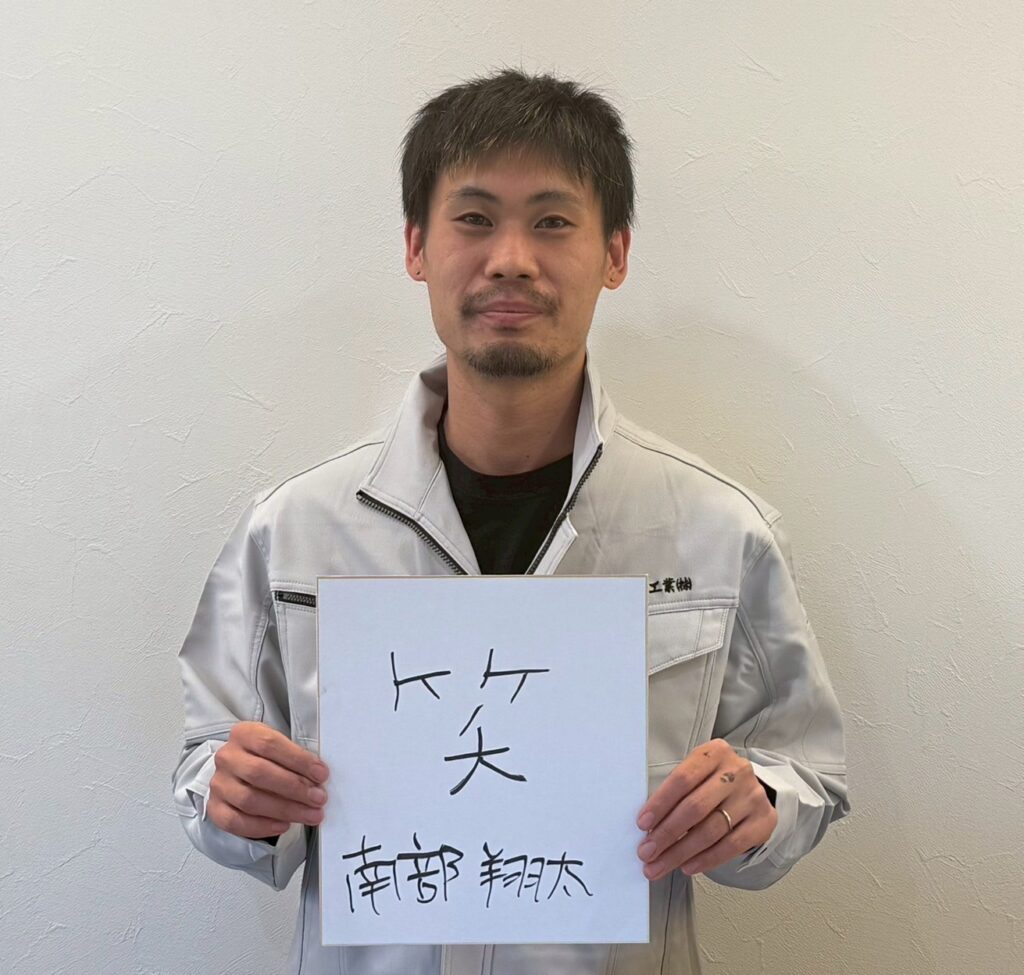 工業㈱
笑
南部 翔太